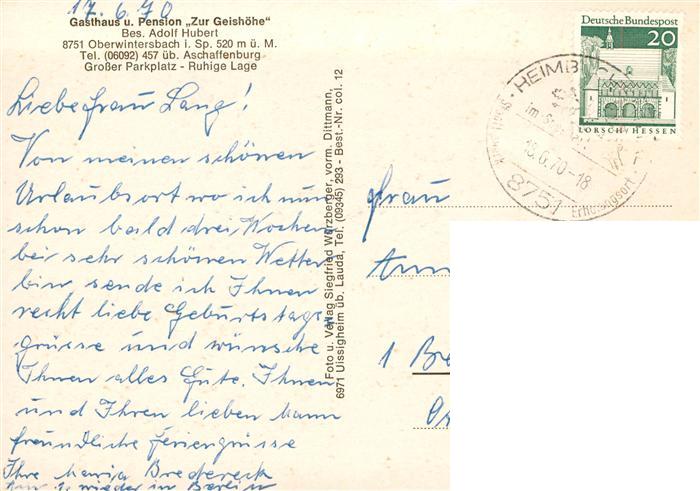 17.6.70
Gasthaus u. Pension „Zur Geishöhe"
Bes. Adolf Hubert
8751 Oberwintersbach i. Sp. 520 m ü. M.
Tel. (06092) 457 üb. Aschaffenburg
Großer Parkplatz - Ruhige Lage
Liebe Frau Lang!
Von meinen schönen
Urlaubsort wo ich nun
schon bald drei Wochen
bei sehr schönen Wetter
bin sende ich Ihnen
recht liebe Geburtstags
grüsse und wünsche
Ihnen alles Gute. Ihnen
und Ihren lieben Mann
freundliche Feriengrüsse
Ihre Maria Bredereck
wieder in Berlin
Foto u. Verlag Siegfried Würzberger, vorm. Dittmann,
6971 Uissigheim üb. Lauda, Tel. (09345) 293 - Best.-Nr. col. 12
Deutsche Bundespost
20
LORSCH/HESSEN
HEIMBUCH
im
18.6.70-18
8751
Erholungsort
Frau
Ann
1 Bre